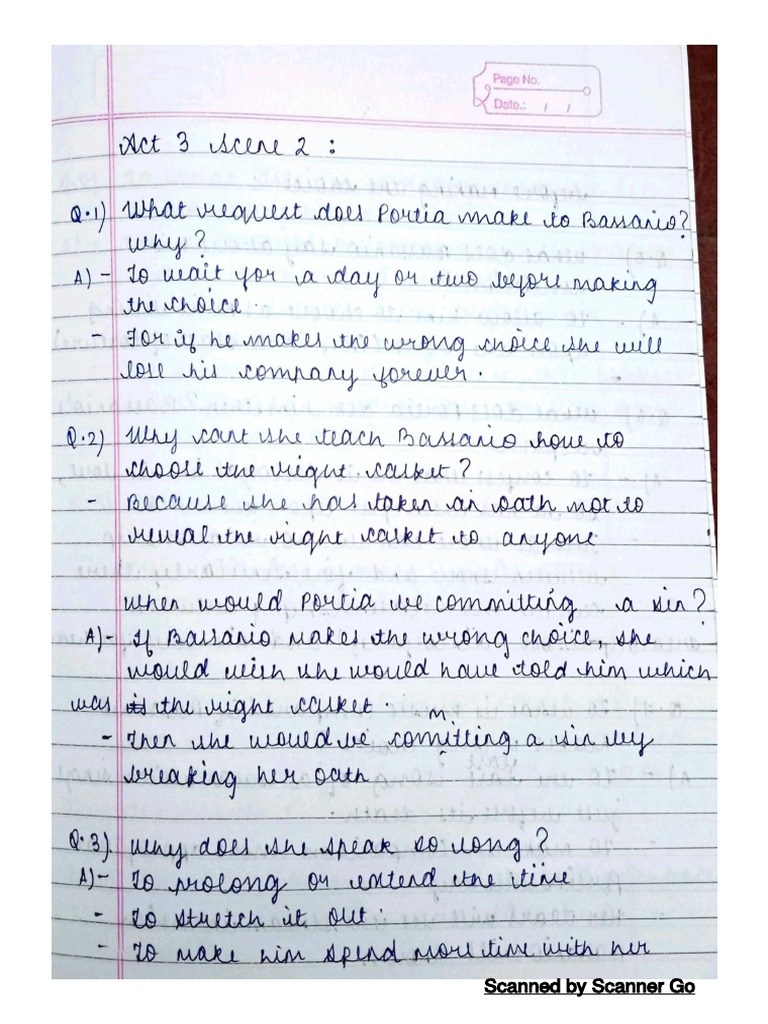 Page No.
Date.: / /
Act 3 Scene 2 :
Q.1) What request does Portia make to Bassanio?
Why?
A) - To wait for a day or two before making
the choice.
- For if he makes the wrong choice she will
lose his company forever.
Q.2) Why cant she teach Bassanio how to
choose the right casket?
- Because she has taken an oath not to
reveal the right casket to anyone
When would Portia be committing a sin?
A) - If Bassanio makes the wrong choice, she
would wish she would have told him which
was is the right casket.
- Then she would be committing a sin by
breaking her oath
Q.3) Why does she speak so long?
A) - To prolong or extend the time
- To stretch it out.
- To make him spend more time with her
Scanned by Scanner Go